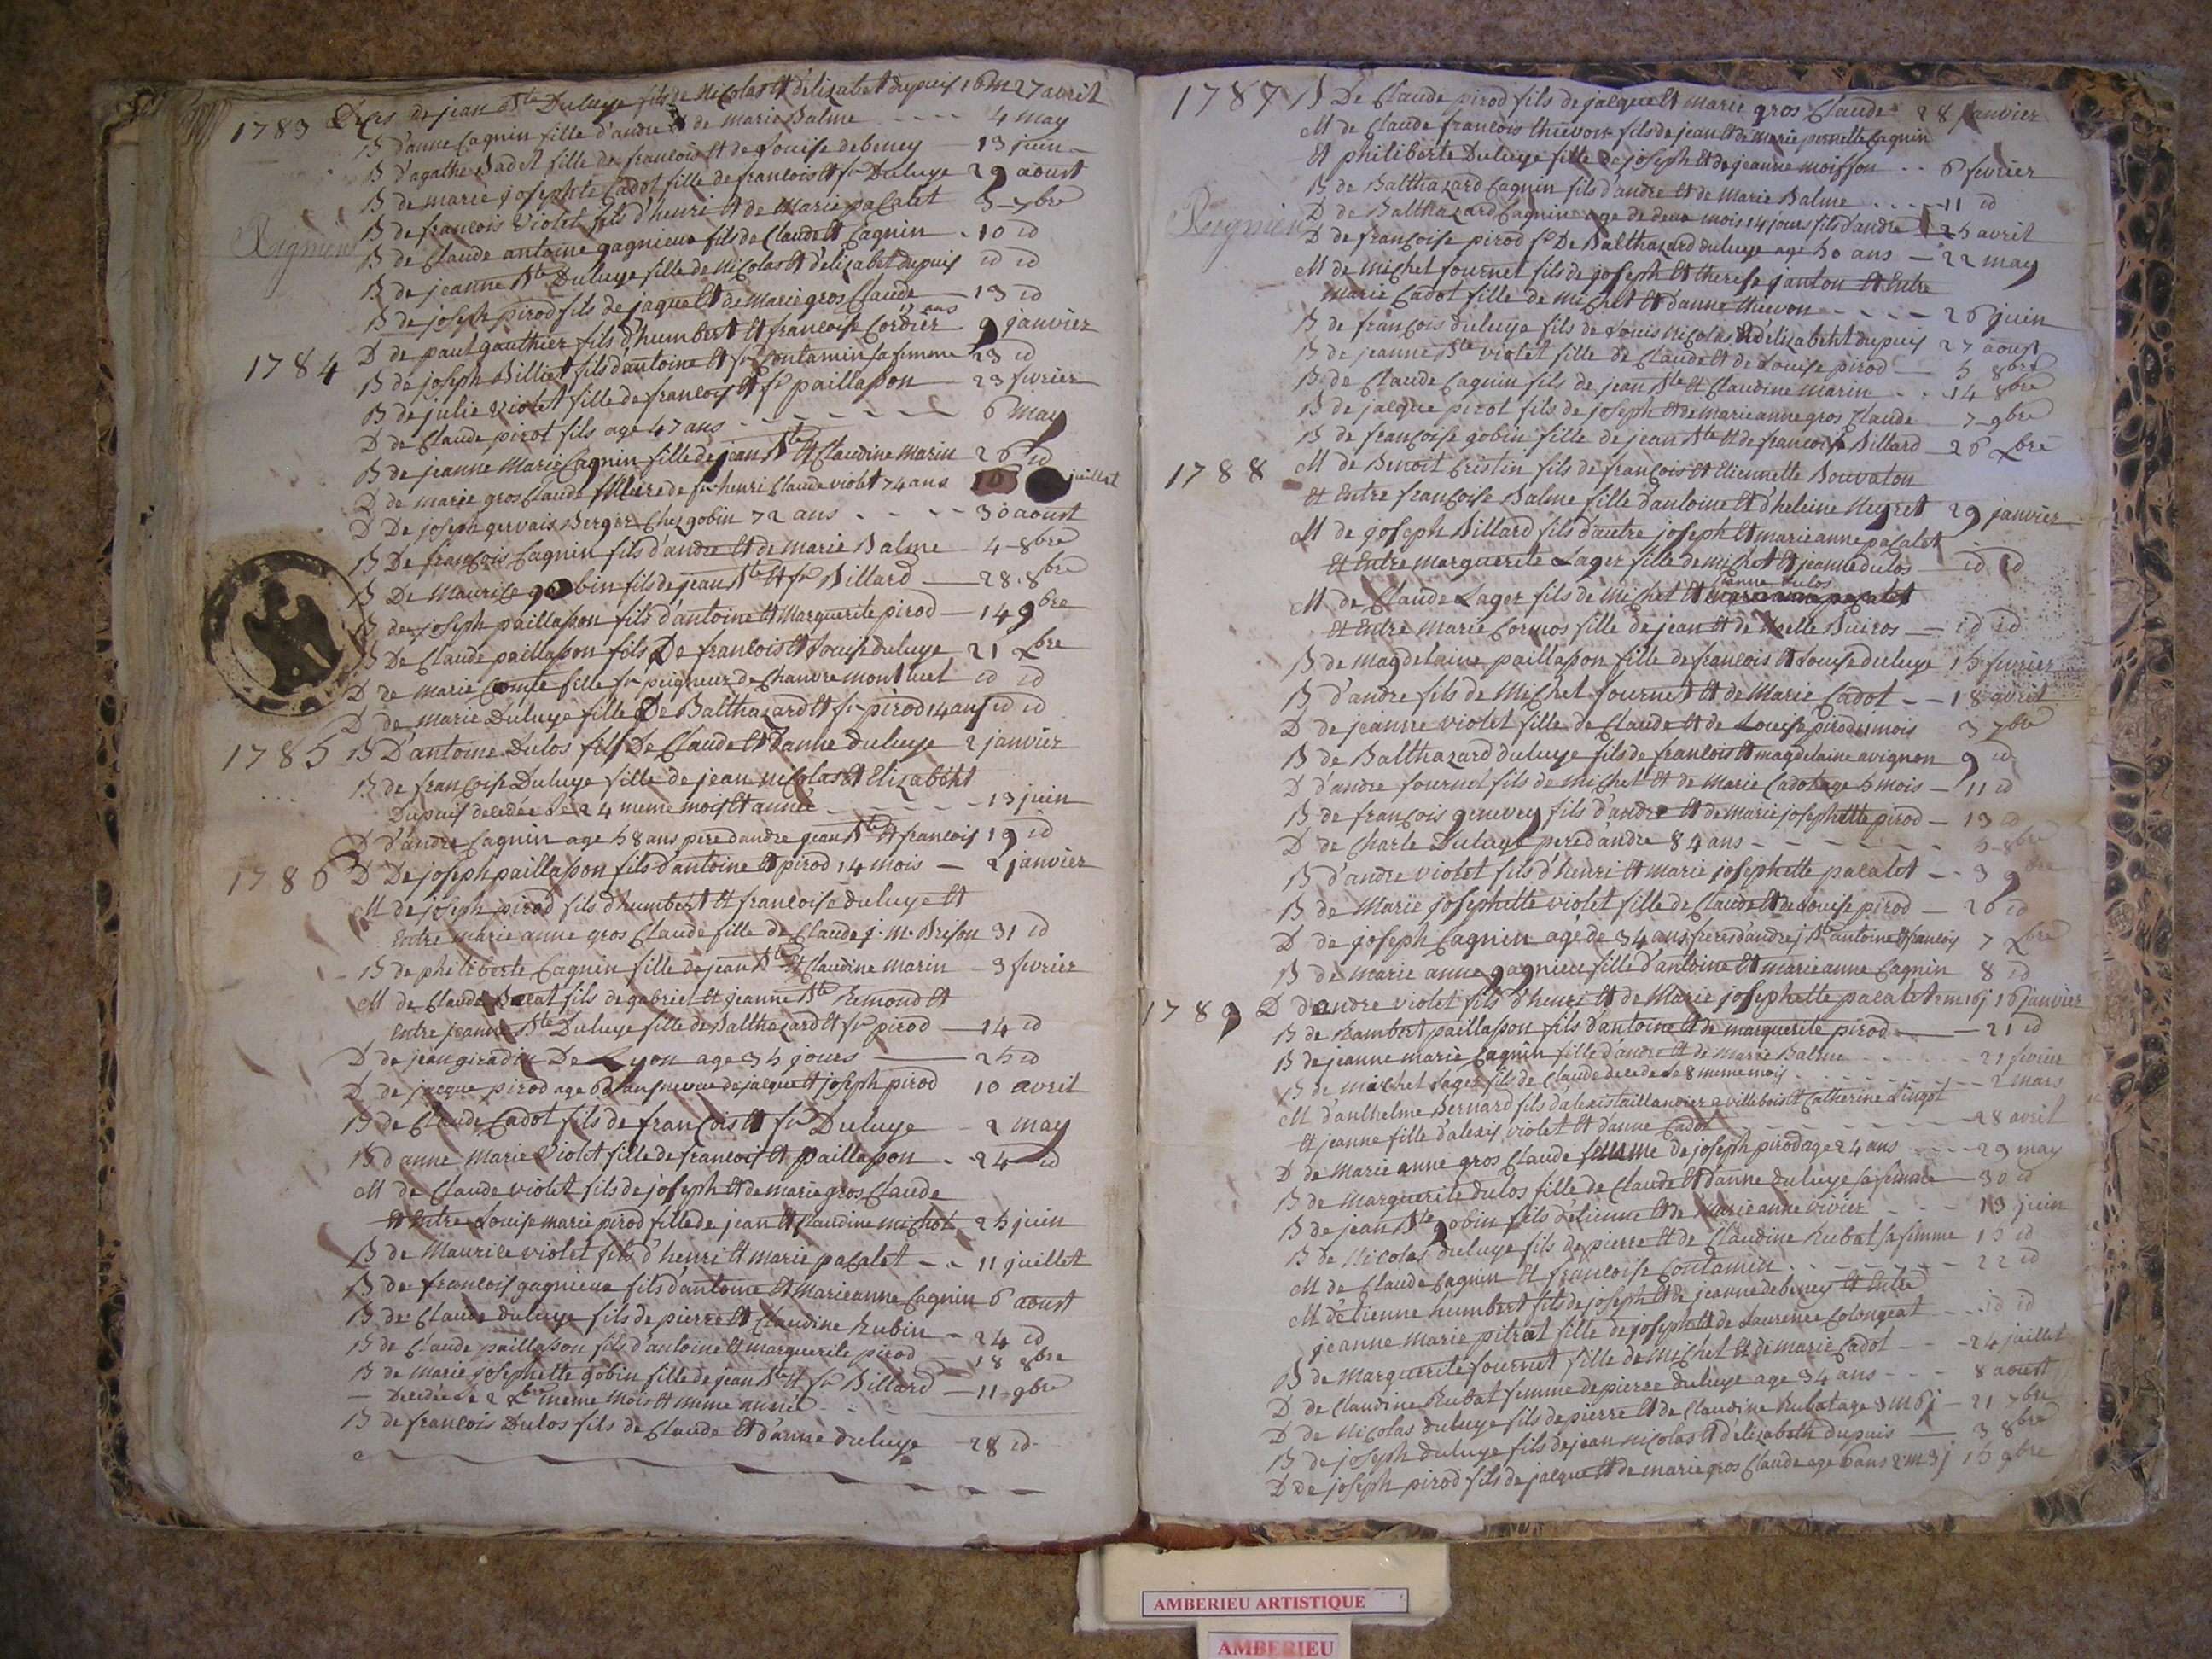 1783 Deces de jean Bte Duluye fils de Nicolas et d'elizabet dupuis 16 m 27 avril
B d'anne Cagnin fille d'andre et de Marie Balme ---- 4 may
B d'agathe Badel fille de francois et de Louise debeney - 13 juin
B de marie josephte Cadot fille de francois et fse Duluye 29 aoust
B de francois Violet fils d'henri et de Marie pacalet 5 7bre
B de Claude antoine gagnieux fils de Claude et Cagnin - 10 id
B de jeanne Bte Duluye fille de Nicolas et d'elizabet dupuis id id
B de joseph pirod fils de jaque et de Marie gros Claude - 13 id
1784 D de paul gauthier fils d'humbert et francoise Cordier ans 9 janvier
B de joseph Billiet fils d'antoine et fse Contamin sa femme 23 id
B de julie violet fille de francois et fse paillasson - 23 fevrier
D de Claude pirot fils age 47 ans ------ 6 may
B de jeanne Marie Cagnin fille de jean Bte et Claudine Marin 26 id
D de marie gros Claude mere de henri Claude violet 74 ans 10 juillet
D De joseph gervais Berger Chez gobin 72 ans ---- 30 aoust
B De francois Cagnin fils d'andre et de Marie Balme - 4 8bre
B De Maurice gobin fils de jean Bte et fse Billard - 28 8bre
B de joseph paillasson fils d'antoine et Marguerite pirod - 14 9bre
B De Claude paillasson fils De francois et Louise duluye 21 xbre
D de Marie Comte peigneur de Chanvre montluel id id
D de marie Duluye fille De Balthazard et fse pirod 14 ans id id
1785 B D'antoine Dulos fils De Claude et d'anne duluye 2 janvier
B de francoise Duluye fille de jean nicolas et Elizabeht
Dupuis decedée Le 24 meme mois et année ------ 13 juin
D d'andre Cagnin age 58 ans pere d'andre jean Bte et francois 19 id
1786 D De joseph paillasson fils d'antoine et pirod 14 mois - 2 janvier
M de joseph pirod fils d'humbert et francoise duluye et
Entre marie anne gros Claude fille de Claude j. M. Brison 31 id
B de philiberte Cagnin fille de jean Bte et Claudine Marin - 3 fevrier
M de Claude fils de gabriel et jeanne Bte Remond et
Entre jeanne Bte Duluye fille de Balthazard et fse pirod - 14 id
D de jean giradin De Lyon age 35 jours - 25 id
D de jacque pirod age neveu de jacque et joseph pirod 10 avril
B de Claude Cadot fils de francois et fse Duluye - 2 may
B d'anne Marie Violet fille de francois et paillasson - 24 id
M de Claude violet fils de joseph et de marie gros Claude
et Entre Louise marie pirod fille de jean et Claudine michot 25 juin
B de Maurice violet fils d'henri et marie pacalet -- 11 juillet
B de francois gagnieux fils d'antoine et Marieanne Cagnin 6 aoust
B de Claude duluye fils de pierre et Claudine Rubin - 24 id
B de Claude paillasson fils d'antoine et marguerite pirod 18 8bre
B de marie josephette gobin fille de jean Bte et fse Billard - 11 9bre
- Decedée Le 2 xbre meme mois et meme année
B de francois Dulos fils de Claude et d'anne duluye 28 id
1787 B De Claude pirod fils de jacque et marie gros Claude 28 janvier
M de Claude francois thievon fils de jean et de marie pernette Cagnin
Et philiberte Duluye fille de joseph et de jeanne moisson -- 6 fevrier
B de Balthazard Cagnin fils d'andre et de Marie Balme ---- 11 id
D de Balthazard Cagnin age de deux mois 14 jours fils d'andre 25 avril
D de francoise pirod fe De Balthazard duluye age 50 ans - 22 may
M de Michel fournet fils de joseph et therese janton et Entre
Marie Cadot fille de Michel et d'anne thievon ---- 26 juin
B de francois duluye fils de Louis Nicolas et d'elizabeht dupuis 27 aoust
B de jeanne Bte violet fille de Claude et de Louise pirod - 5 8bre
B de Claude Cagnin fils de jean Bte et Claudine Marin - 14 8bre
B de jacque pirot fils de joseph et de marie anne gros Claude 7 9bre
B de francoise gobin fille de jean Bte et de francoise Billard - 26 xbre
1788 M de Benoit Cristin fils de francois et Etiennette Bouvaton
et Entre francoise Balme fille d'antoine et d'heleine Neyret 29 janvier
M de joseph Billard fils d'autre joseph et marie anne pacalet
et Entre marguerite Lager fille de michel et jeanne dulos - id id
jeanne dulos
M de Claude Lager fils de Michel et
et Entre Marie Cormos fille de jean et de Buiros - id id
B de Magdelaine paillasson fille de francois et Louise duluye 15 fevrier
B d'andre fils de Michel fournet et de Marie Cadot -- 18 avril
D de jeanne violet fille de Claude et de Louise pirod mois 3 7bre
B de Balthazard duluye fils de francois et magdelaine avignon 9 id
D d'andre fournet fils de michel et de Marie Cadot age 5 mois - 11 id
B de francois genevey fils d'andre et de marie josephette pirod - 13 id
D de Charle Duluye pere d'andre 84 ans ------ 5 8bre
B d'andre violet fils d'henri et marie josephette pacalet -- 3 9bre
B de Marie josephette violet fille de Claude et de Louise pirod - 26 id
D de joseph Cagnin agé de 34 ans freres d'andre j Bte antoine et francois 7 xbre
B de Marie anne gagnieu fille d'antoine et marie anne Cagnin 8 id
1789 D d'andre violet fils d'henri et de Marie josephette pacalet 2 m 16 j 16 janvier
B de Rambert paillasson fils d'antoine et de marguerite pirod - 21 id
B de jeanne marie Cagnin fille d'andre et de Marie Balme 21 fevrier
B de michel Lager fils de Claude decede Le 8 meme mois - 2 mars
M d'anthelme Bernard fils d'alexis taillandier a villebois et Catherine Lingot
et jeanne fille d'alexis violet et d'anne Cadot ---- 28 avril
D de Marie anne gros Claude femme de joseph pirod age 24 ans ---- 29 may
B de Marguerite dulos fille de Claude et d'anne duluye sa femme - 30 id
B de jean Bte gobin fils d'etienne et de Marie anne vivier --- 13 juin
B de Nicolas duluye fils de pierre et de Claudine Rubat sa femme 15 id
M de Claude Cagnin et francoise Contamin ------ 22 id
M d'etienne humbert fils de joseph et de jeanne debeney et Entre
jeanne marie pitrat fille de joseph et de Laurence Colongeat --- id id
B de Marguerite fournet fille de Michel et de marie Cadot --- 24 juillet
D de Claudine Rubat femme de pierre duluye age 34 ans --- 8 aoust
D de Nicolas duluye fils de pierre et de Claudine Rubat age 3 m 6 j - 21 7bre
B de joseph duluye fils de jean nicolas et d'elizabeth dupuis - 3 8bre
D de joseph pirod fils de jacque et de marie gros Claude age 6 ans 2 m 3 j 15 9bre
AMBERIEU ARTISTIQUE
AMBERIEU